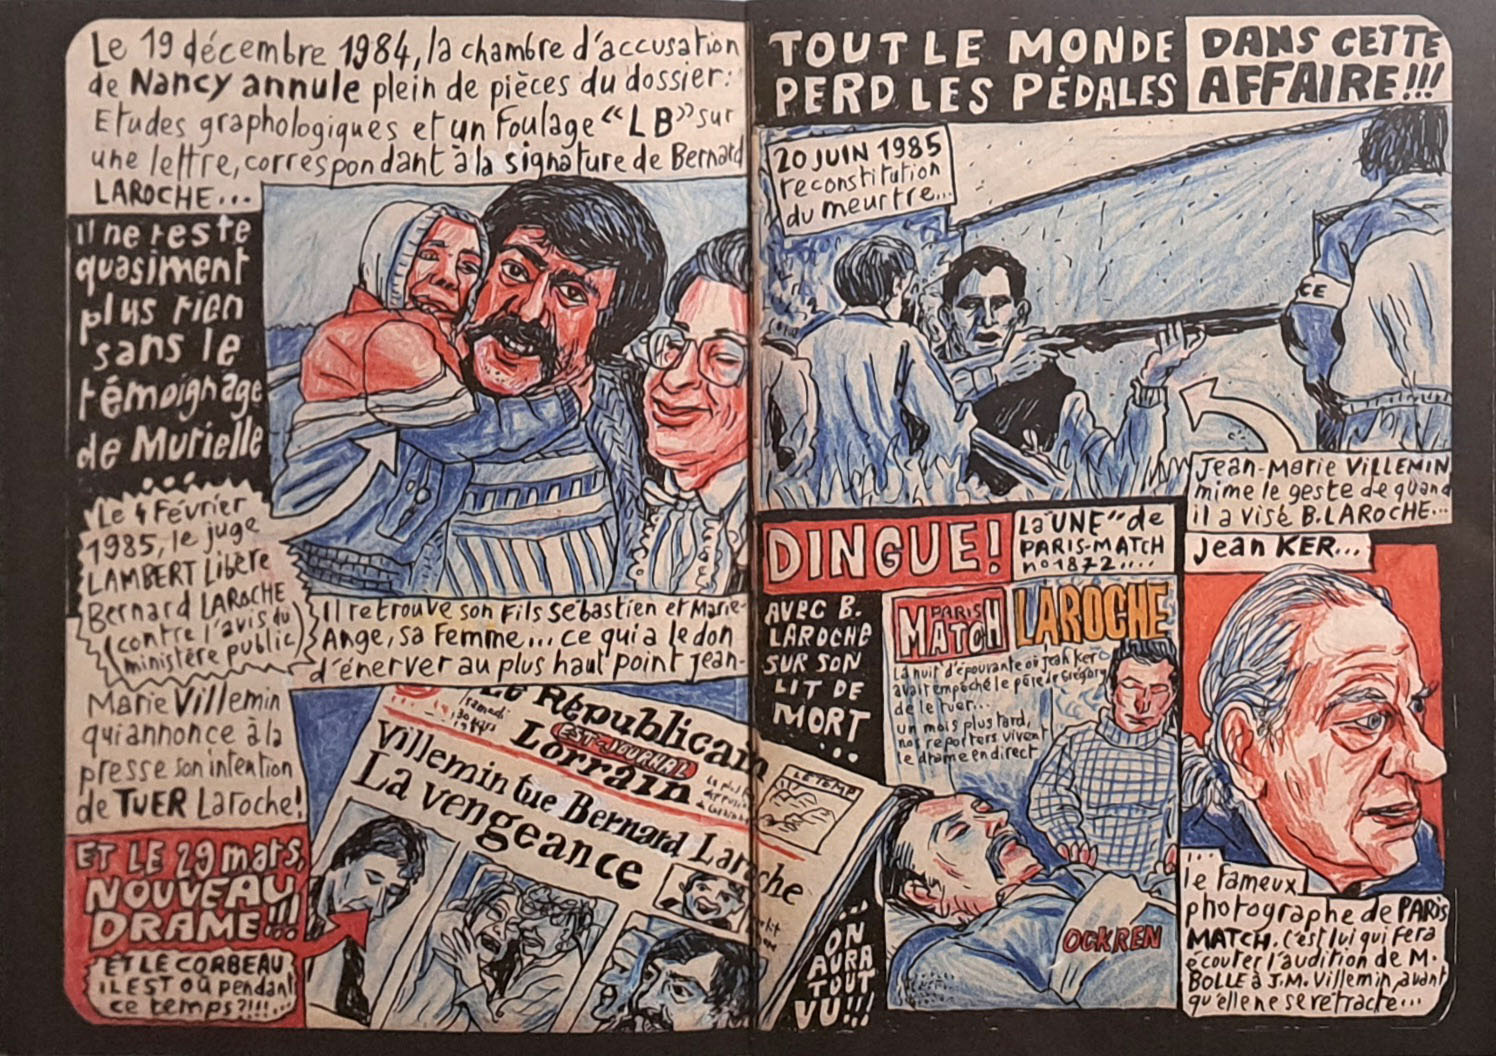 Le 19 décembre 1984, la chambre d'accusation
de Nancy annule plein de pièces du dossier:
Etudes graphologiques et un Foulage "LB" sur
une lettre, correspondant à la signature de Bernard
LAROCHE...
Il ne reste
quasiment
plus rien
sans le
témoignage
de Murielle
......
Le 4 Février
1985, le juge
LAMBERT Libère
Bernard LAROCHE
(contre l'avis du
ministère public)
Il retrouve son Fils Sébastien et Marie-
Ange, sa Femme... ce qui a le don
d'énerver au plus haut point Jean-
Marie Villemin
qui annonce à la
presse son intention
de TUER Laroche!
ET LE 29 mars,
NOUVEAU
DRAME!!!
ET LE CORBEAU,
IL EST OÙ pendant
ce temps?!!!...
Le Républicain
Lorrain
EST-JOURNAL
samedi
30 mars
Villemin tue Bernard Laroche
La vengeance
LE TEMPS
TOUT LE MONDE
PERD LES PÉDALES
DANS CETTE
AFFAIRE!!!
20 JUIN 1985
reconstitution
du meurtre...
CE
Jean-Marie VILLEMIN
mime le geste de quand
il a visé B.LAROCHE...
DINGUE!
La "UNE" de
PARIS-MATCH
no 1872....
AVEC B.
LAROCHE
SUR SON
LIT DE
MORT
...
PARIS
MATCH
LAROCHE
La nuit d'épouvante où Jean Ker
avait empêché le père de Grégory
de le tuer...
un mois plus tard,
nos reporters vivent
le drame en direct
OCKREN
...
ON
AURA
TOUT
VU!!!
Jean KER...
...
le Fameux
photographe de PARIS
MATCH. C'est lui qui Fera
écouter l'audition de M.
BOLLE à J.M. Villemin avant
qu'elle ne se rétracte...